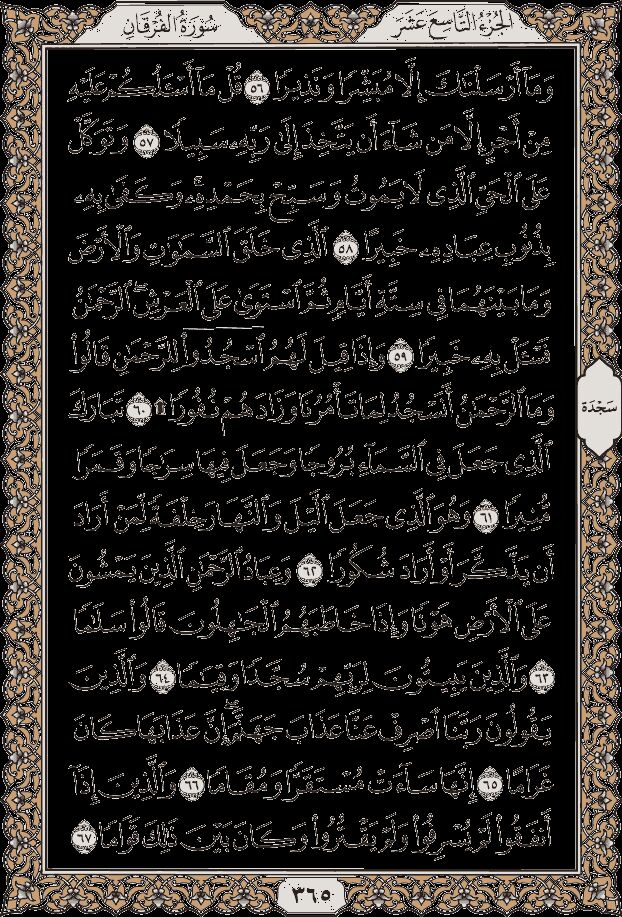 سُورَةُ الفُرْقَانِ
الجُزْءُ التَّاسِعَ عَشَرَ
وَمَآ أَرْسَلْنَٰكَ إِلَّا مُبَشِّرًا وَنَذِيرًا ٥٦ قُلْ مَآ أَسْـَٔلُكُمْ عَلَيْهِ
مِنْ أَجْرٍ إِلَّا مَن شَآءَ أَن يَتَّخِذَ إِلَىٰ رَبِّهِۦ سَبِيلًا ٥٧ وَتَوَكَّلْ
عَلَى ٱلْحَىِّ ٱلَّذِى لَا يَمُوتُ وَسَبِّحْ بِحَمْدِهِۦ ۚ وَكَفَىٰ بِهِۦ
بِذُنُوبِ عِبَادِهِۦ خَبِيرًا ٥٨ ٱلَّذِى خَلَقَ ٱلسَّمَٰوَٰتِ وَٱلْأَرْضَ
وَمَا بَيْنَهُمَا فِى سِتَّةِ أَيَّامٍ ثُمَّ ٱسْتَوَىٰ عَلَى ٱلْعَرْشِ ۚ ٱلرَّحْمَٰنُ
فَسْـَٔلْ بِهِۦ خَبِيرًا ٥٩ وَإِذَا قِيلَ لَهُمُ ٱسْجُدُوا۟ لِلرَّحْمَٰنِ قَالُوا۟
وَمَا ٱلرَّحْمَٰنُ أَنَسْجُدُ لِمَا تَأْمُرُنَا وَزَادَهُمْ نُفُورًا ۩ ٦٠ تَبَارَكَ
سَجْدَة
ٱلَّذِى جَعَلَ فِى ٱلسَّمَآءِ بُرُوجًا وَجَعَلَ فِيهَا سِرَٰجًا وَقَمَرًا
مُّنِيرًا ٦١ وَهُوَ ٱلَّذِى جَعَلَ ٱلَّيْلَ وَٱلنَّهَارَ خِلْفَةً لِّمَنْ أَرَادَ
أَن يَذَّكَّرَ أَوْ أَرَادَ شُكُورًا ٦٢ وَعِبَادُ ٱلرَّحْمَٰنِ ٱلَّذِينَ يَمْشُونَ
عَلَى ٱلْأَرْضِ هَوْنًا وَإِذَا خَاطَبَهُمُ ٱلْجَٰهِلُونَ قَالُوا۟ سَلَٰمًا
٦٣ وَٱلَّذِينَ يَبِيتُونَ لِرَبِّهِمْ سُجَّدًا وَقِيَٰمًا ٦٤ وَٱلَّذِينَ
يَقُولُونَ رَبَّنَا ٱصْرِفْ عَنَّا عَذَابَ جَهَنَّمَ ۖ إِنَّ عَذَابَهَا كَانَ
غَرَامًا ٦٥ إِنَّهَا سَآءَتْ مُسْتَقَرًّا وَمُقَامًا ٦٦ وَٱلَّذِينَ إِذَآ
أَنفَقُوا۟ لَمْ يُسْرِفُوا۟ وَلَمْ يَقْتُرُوا۟ وَكَانَ بَيْنَ ذَٰلِكَ قَوَامًا ٦٧
٣٦٥